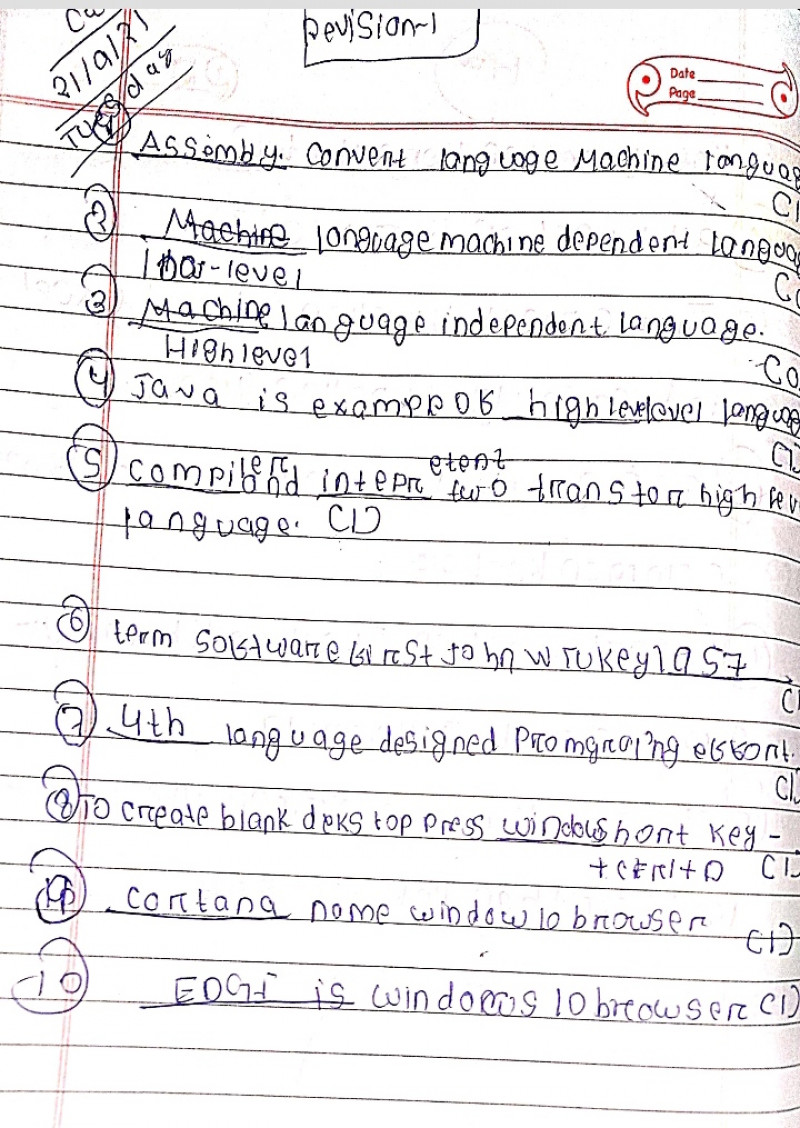 Revision-1
21/9/21
Tuesday
Date
Page
① Assembly. Convent language Machine language
② Machine language machine dependent langua
low-level
③ Machine language independent language.
High level
④ Java is example of high levelevel languag
⑤ Compiler and interpr etent two translator high lev
language. (1)
⑥ term software first John W Tukey 1957
⑦ 4th language designed Promgraing effort.
⑧ To create blank dekstop press windows hort key -
+ Ctrl + D (1)
cortana name window 10 browser (1)
10 EDGE is windows 10 browser (1)